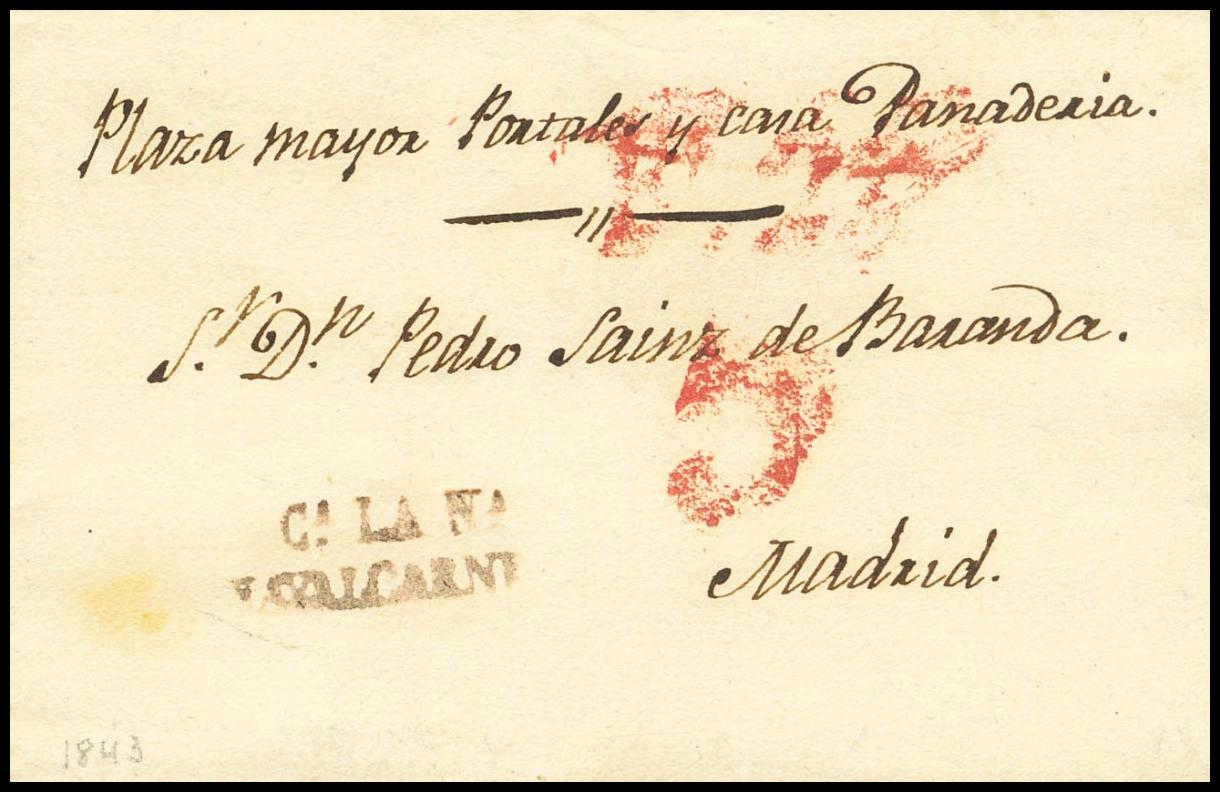 Plaza mayor Portales y casa Panaderia.
Sr. Dn. Pedro Sainz de Baranda.
5
Cª LA Nª
NAVALCARNE
Madrid.
1843